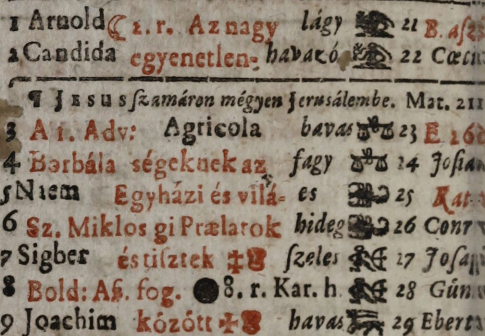 1 Arnold ☾ 2. r. Az nagy lágy 21 B. aſz
2 Candida egyenetlen- havazó 22 Cœc
¶ JESUS ſzamáron mégyen Jeruſálembe. Mat. 21
3 A 1. Adv: Agricola havas 23 E
4 Borbála ségeknek az fagy 24 Joſia
5 Niem Egyházi és vilá- es 25 Kat
6 Sz. Miklos gi Prælatok hideg 26 Conr
7 Sigber és tiſztek ſzeles 27 Joſap
8 Bold: Aſ. fog. ● 8. r. Kar. h. 28 Gún
9 Joachim között havas 29 Ebert